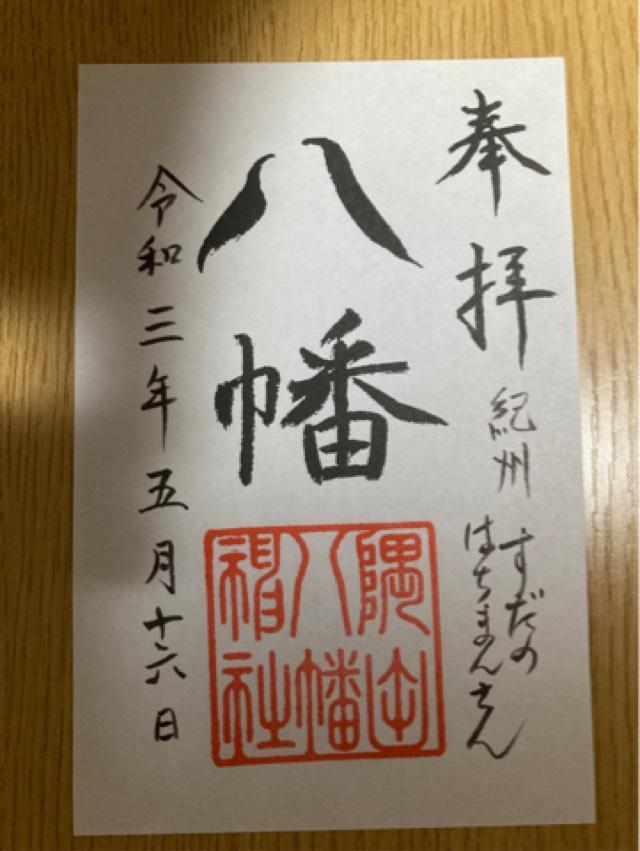 奉拝
紀州
すだの
はちまんさん
八幡
隅田
八幡
神社
令和三年五月十六日